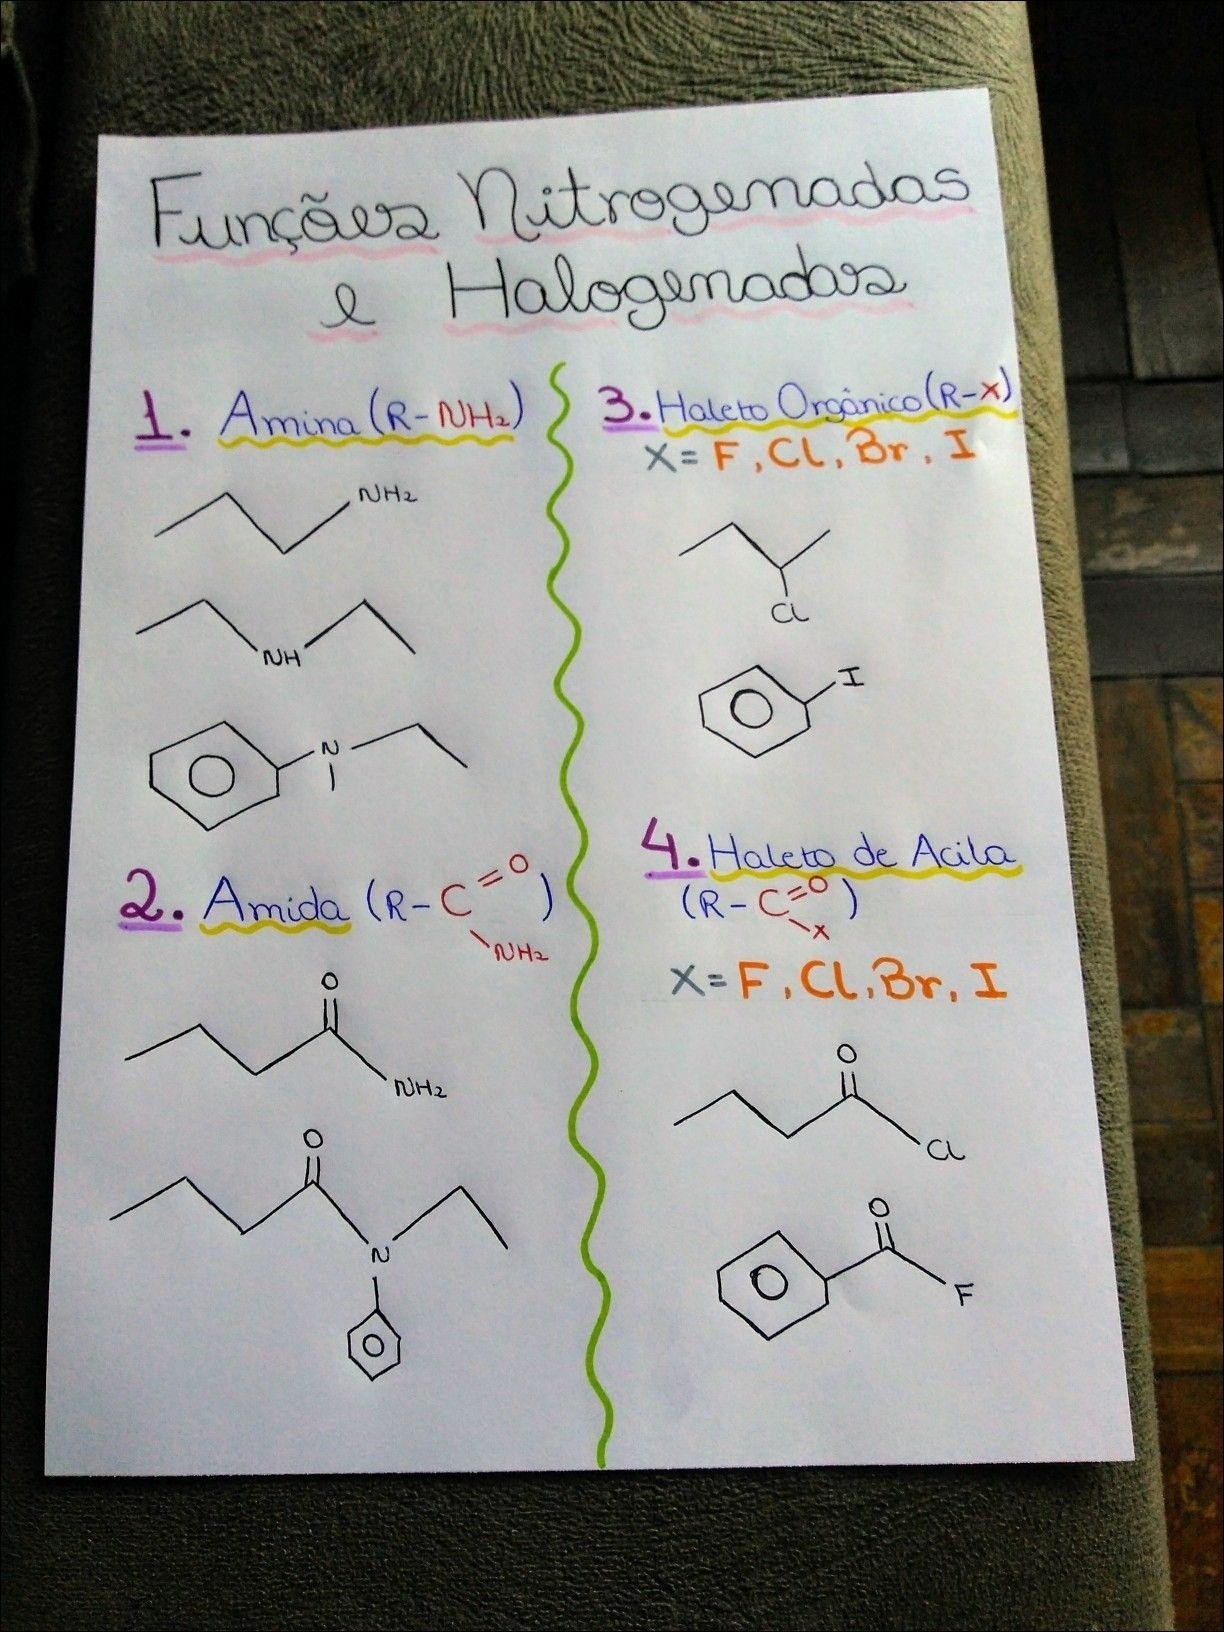 Funções Nitrogenadas
e Halogenadas
1. Amina (R-NH2)
NH2
NH
N
2. Amida (R-C=O
NH2)
O
NH2
O
N
3. Haleto Orgânico (R-X)
X= F, Cl, Br, I
Cl
I
4. Haleto de Acila
(R-C=O
X)
X= F, Cl, Br, I
O
Cl
O
F